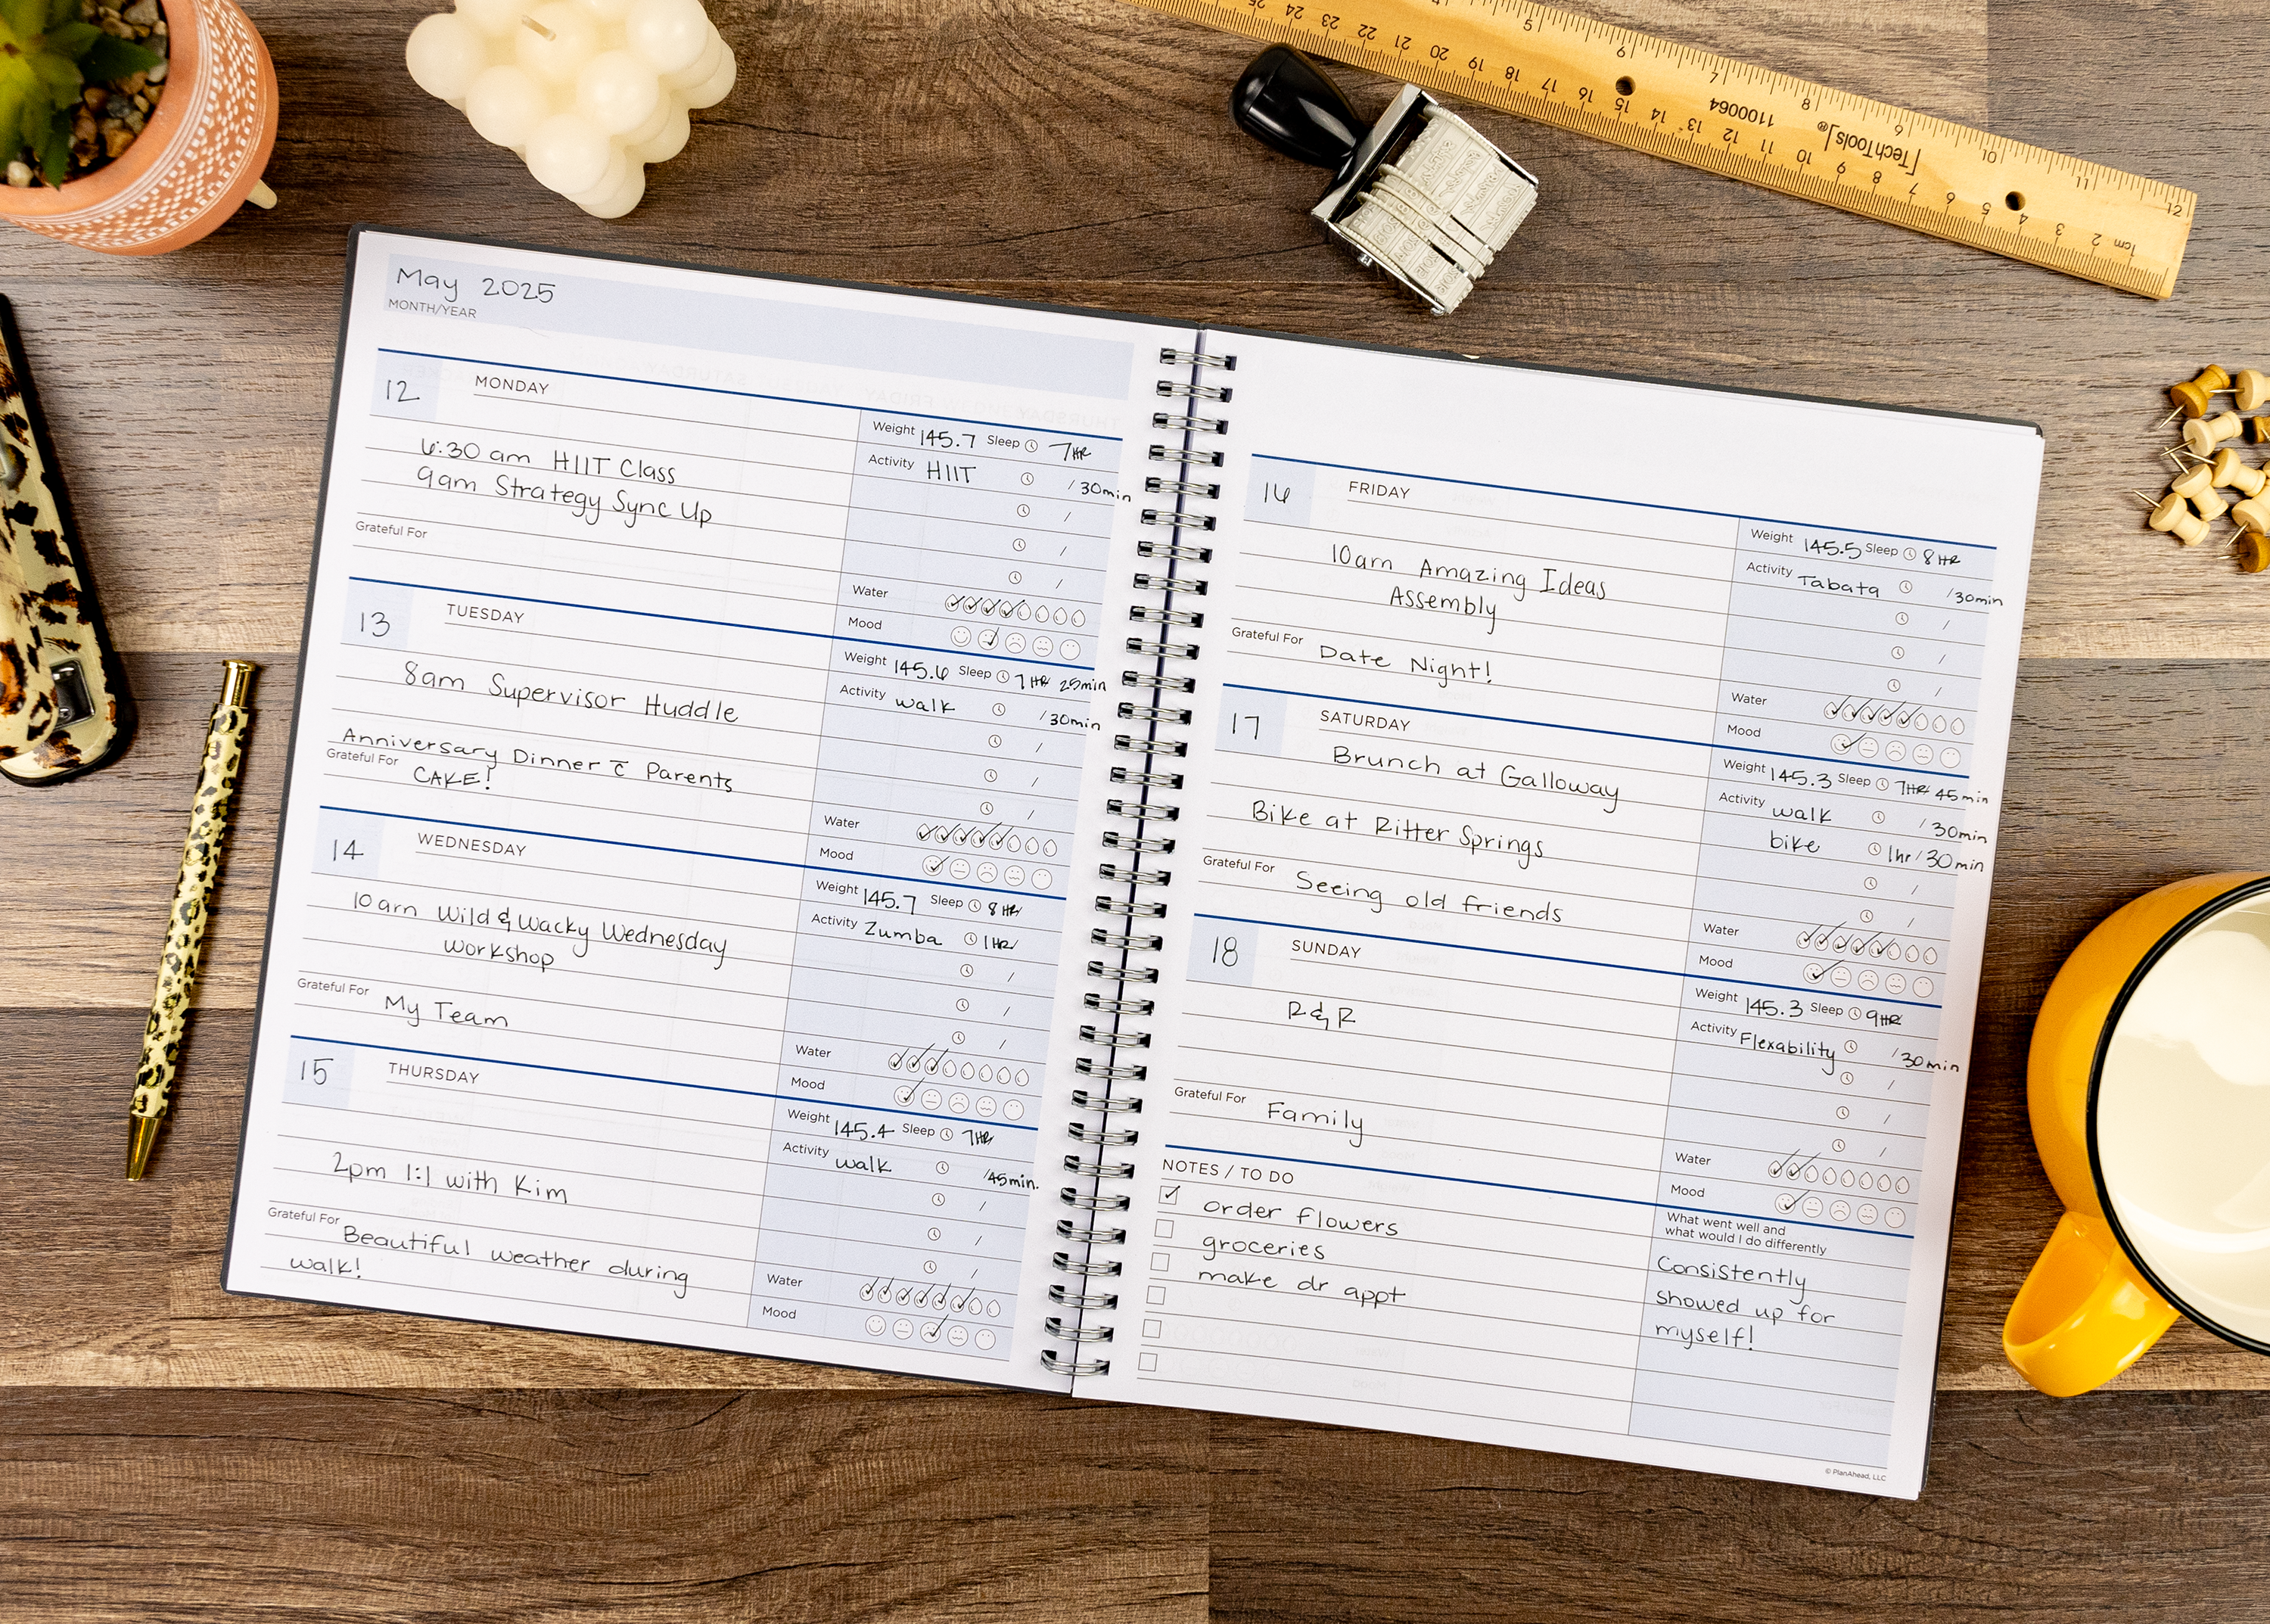 May 2025
MONTH/YEAR
12 MONDAY
Weight 145.7 Sleep 7HR
6:30 am HIIT Class
Activity HIIT /30min
9am Strategy Sync Up
/
/
Grateful For
/
Water
Mood
13 TUESDAY
Weight 145.6 Sleep 7HR 25min
8am Supervisor Huddle
Activity walk /30min
/
/
Anniversary Dinner c̄ Parents
/
Grateful For CAKE!
Water
Mood
14 WEDNESDAY
Weight 145.7 Sleep 8HR/
10am Wild & Wacky Wednesday
Activity Zumba 1HR/
workshop
/
/
/
Grateful For My Team
Water
Mood
15 THURSDAY
Weight 145.4 Sleep 7HR/
Activity walk /45min.
2pm 1:1 with Kim
/
/
/
Grateful For Beautiful weather during
walk!
Water
Mood
16 FRIDAY
Weight 145.5 Sleep 8HR
10am Amazing Ideas
Activity Tabata /30min
Assembly
/
/
/
Grateful For Date Night!
Water
Mood
17 SATURDAY
Brunch at Galloway
Weight 145.3 Sleep 7HR 45min
Activity walk /30min
Bike at Ritter Springs
bike 1hr/30min
/
/
Grateful For Seeing old friends
Water
Mood
18 SUNDAY
Weight 145.3 Sleep 9HR
R&R
Activity Flexability /30min
/
/
/
Grateful For Family
Water
Mood
NOTES / TO DO
order flowers
groceries
make dr appt
What went well and
what would I do differently
Consistently
showed up for
myself!
© PlanAhead, LLC
[TechTools®
1100064
4 5 6 7 8 9 10 11 12
25 24 23 22 21 20 19 18 17 16 15 14 13 12 11 10 9 8 7 6 5 4 3 2 1cm